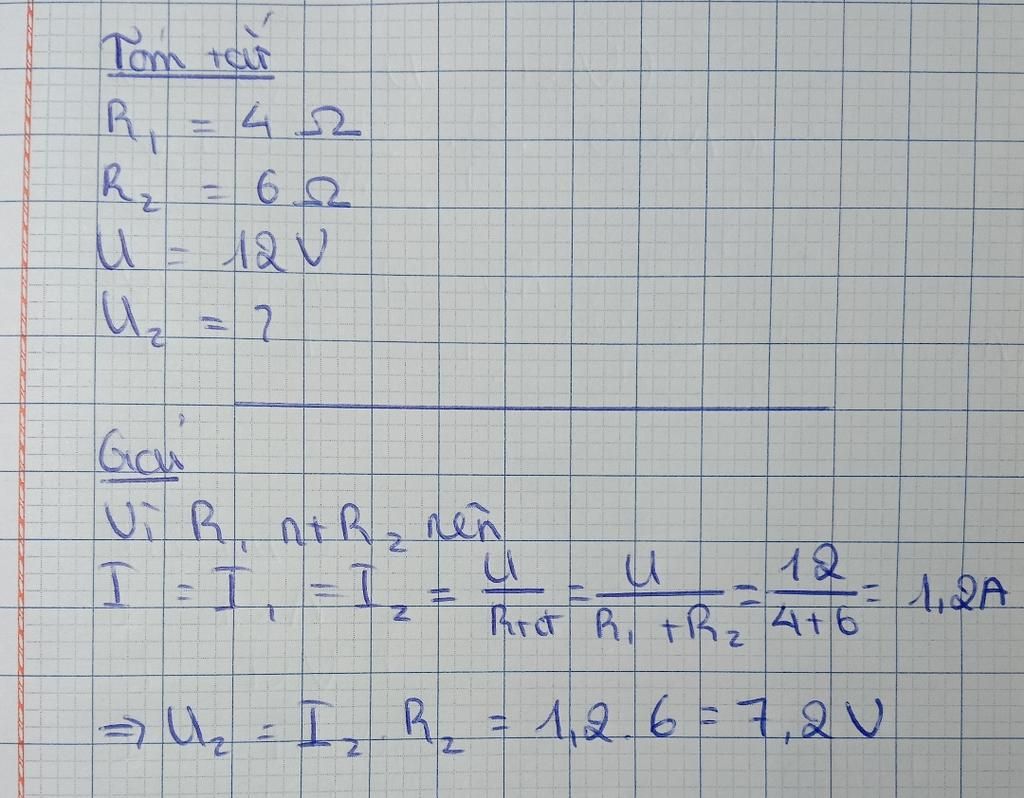 Tóm tắt
R₁ = 4 Ω
R₂ = 6 Ω
U = 12 V
U₂ = ?
Giải
Vì R₁ nt R₂ nên
I = I₁ = I₂ = U/Rtđ = U/(R₁ + R₂) = 12/(4+6) = 1,2A
⇒ U₂ = I₂ . R₂ = 1,2 . 6 = 7,2 V